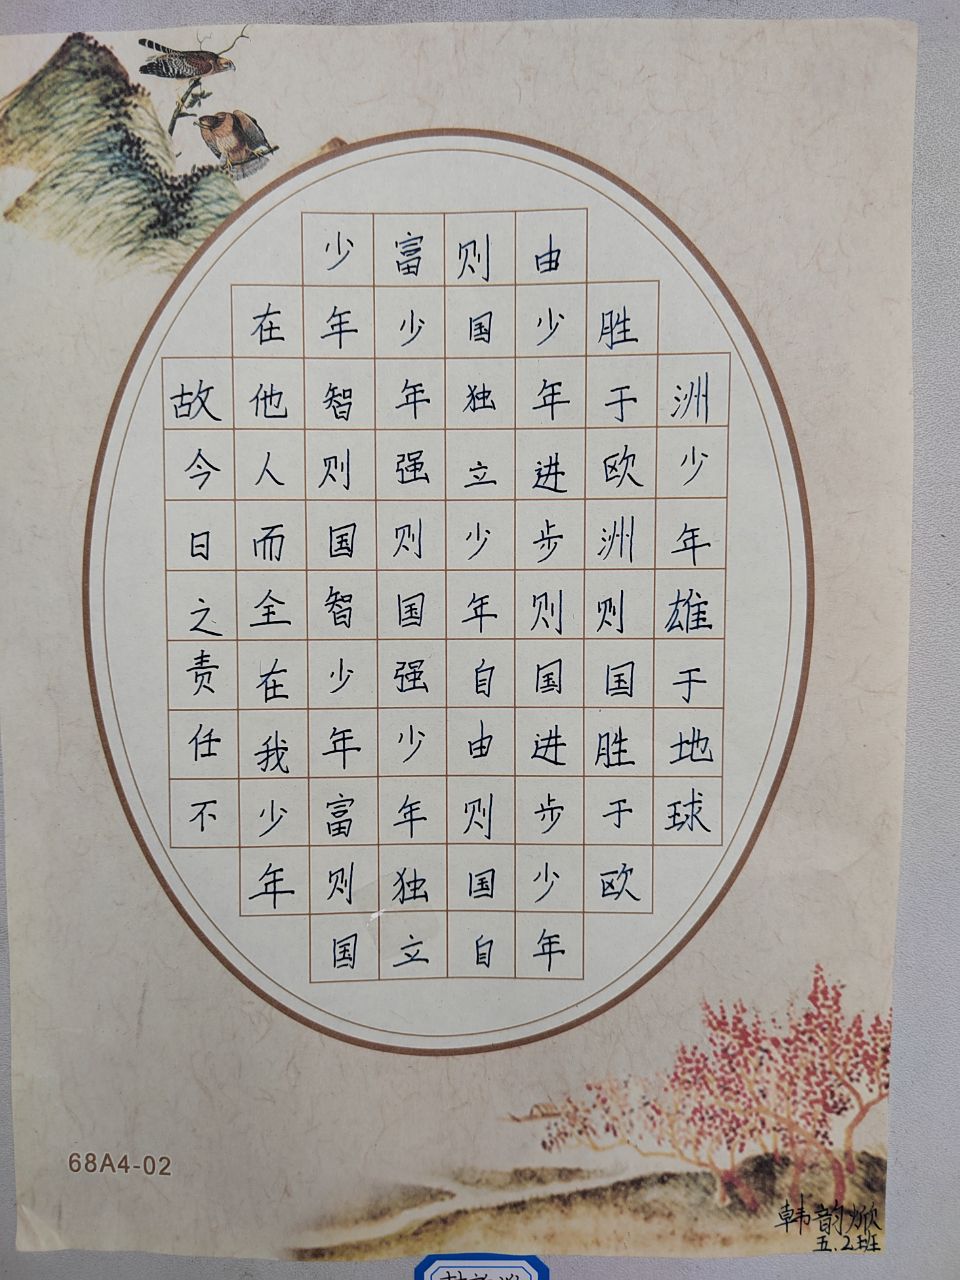 故今日之责任不
在他人而全在我少年
少年智则国智少年富则国
富少年强则国强少年独立
则国独立少年自由则国自
由少年进步则国进步少年
胜于欧洲则国胜于欧
洲少年雄于地球
68A4-02
韩韵焮
五.2班